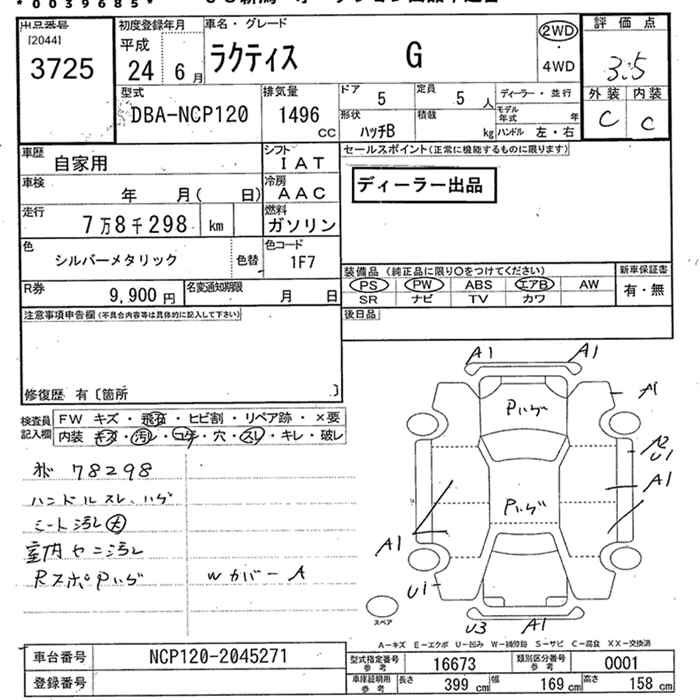 *0039685*
出品番号
[2044]
3725
初度登録年月
平成
24 6月
車名・グレード
ラクティス G
2WD
・
4WD
評価点
3.5
外装 内装
C C
型式
DBA-NCP120
排気量
1496 CC
ドア 5
定員 5人
ディーラー・並行
モデル年式 年
形状 ハッチB
積載 kg
ハンドル 左・右
車歴 自家用
シフト IAT
車検 年 月( 日)
冷房 AAC
走行 7万8千298 km
燃料 ガソリン
色 シルバーメタリック 色替
色コード 1F7
R券 9,900円
名変通知期限 月 日
セールスポイント(正常に機能するものに限ります)
ディーラー出品
装備品(純正品に限り○をつけてください)
新車保証書
PS PW ABS エアB AW
有・無
SR ナビ TV カワ
後日品
注意事項申告欄(不具合内容等は具体的に記入して下さい)
修復歴 有〔箇所 〕
検査員記入欄
FW キズ・飛石・ヒビ割・リペア跡・×要
内装 キズ・汚レ・コゲ・穴・スレ・キレ・破レ
78298
ハンドルスレ、ハゲ
シート汚レ大
室内ヤニ汚レ
RスポPハゲ
WカバーA
A1 A1
Pハゲ
A1
U1
A1
Pハゲ
A1
U1
U3 A1
スペア
A-キズ E-エクボ U-凹み W-補修跡 S-サビ C-腐食 XX-交換済
車台番号 NCP120-2045271
登録番号
型式指定番号 参考 16673
類別区分番号 参考 0001
車庫証明用 参考 長さ 399cm 幅 169cm 高さ 158cm